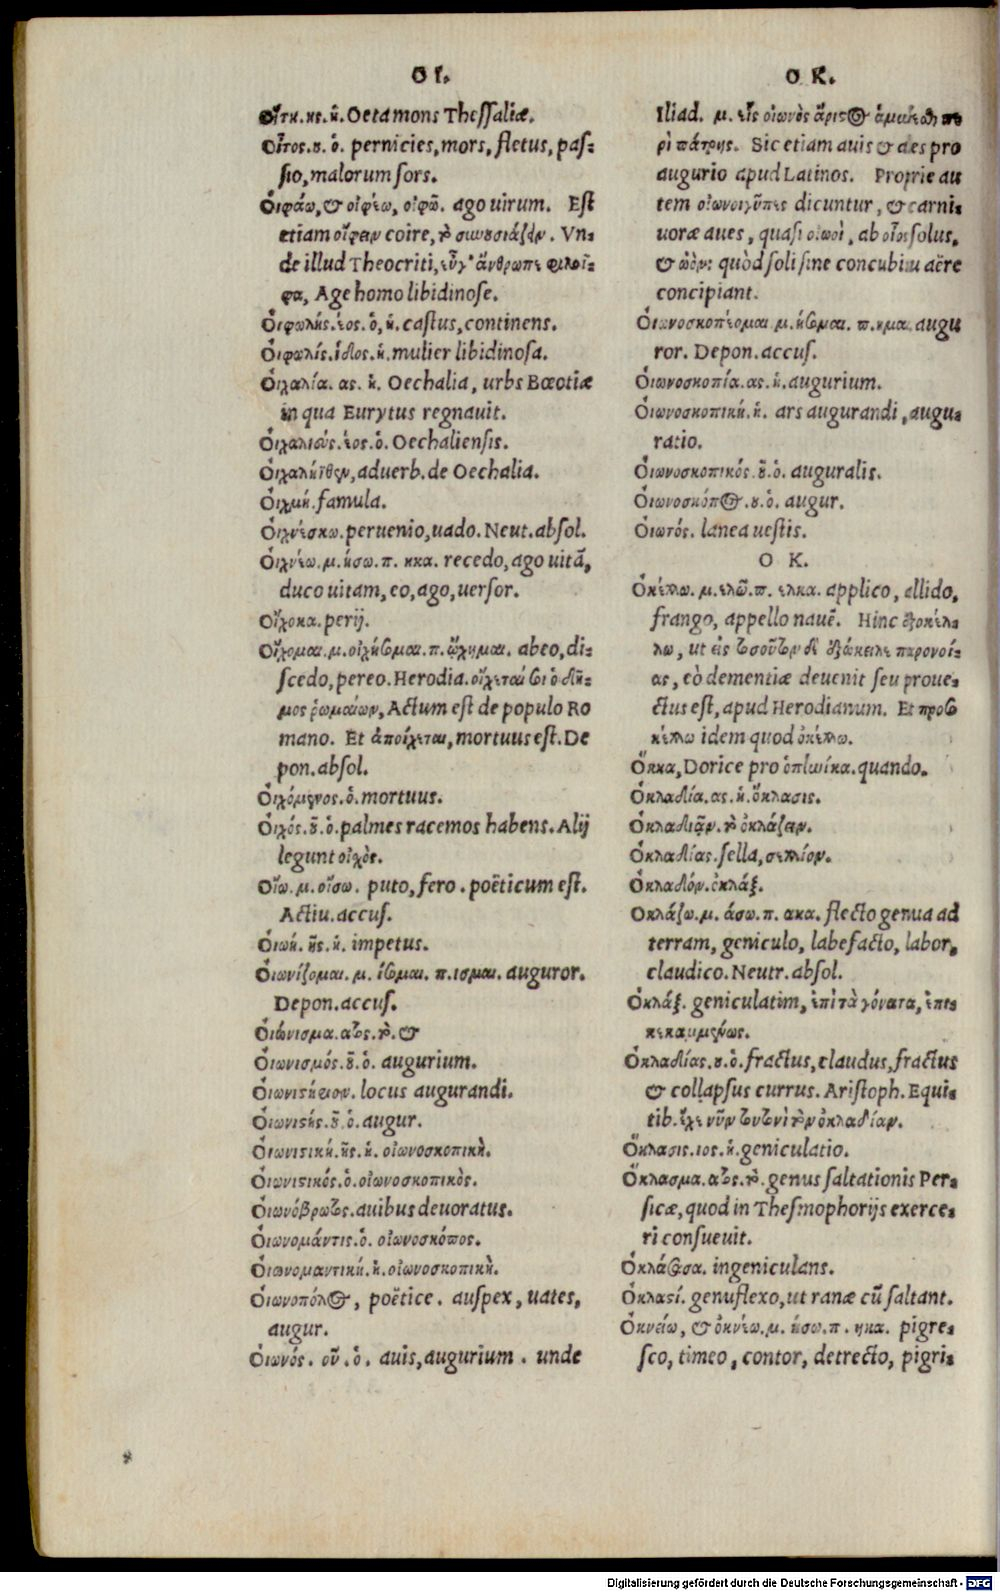 Ο Ι.
Οἴτη.ης.ἡ.Oeta mons Thessaliæ.
Οἶτος.ου.ὁ. pernicies, mors, fletus, pas=
sio, malorum sors.
Οἰφάω, & οἰφέω, οἰφῶ. ago uirum. Est
etiam οἴφειν coire, τὸ συνουσιάζειν. Vn=
de illud Theocriti, εὖγ' ἄνθρωπε φιλοῖ=
φα, Age homo libidinose.
Οἰφωλής.έος.ὁ, ἡ. castus, continens.
Οἰφωλίς.ίδος.ἡ. mulier libidinosa.
Οἰχαλία. ας. ἡ. Oechalia, urbs Bœotiæ
in qua Eurytus regnauit.
Οἰχαλιεύς.έος.ὁ. Oechaliensis.
Οἰχαλίηθεν, aduerb. de Oechalia.
Οἰχμή. famula.
Οἰχνέσκω. peruenio, uado. Neut. absol.
Οἰχνέω.μ.ήσω.π. ηκα. recedo, ago uitã,
duco uitam, eo, ago, uersor.
Οἴχοκα. perij.
Οἴχομαι.μ.οἰχήσομαι.π.ᾤχημαι. abeo, di=
scedo, pereo. Herodia. οἴχεταί σοι ὁ δῆ=
μος ῥωμαίων, Actum est de populo Ro
mano. Et ἀποίχεται, mortuus est. De
pon. absol.
Οἰχόμενος.ὁ. mortuus.
Οἰχός.οῦ.ὁ. palmes racemos habens. Alij
legunt οἰχὸς.
Οἴω.μ.οἴσω. puto, fero. poëticum est.
Actiu. accus.
Οἰωή. ῆς. ἡ. impetus.
Οἰωνίζομαι. μ. ίσομαι. π.ισμαι. auguror.
Depon. accus.
Οἰώνισμα.ατος.τὸ. &
Οἰωνισμός.οῦ.ὁ. augurium.
Οἰωνιστήριον. locus augurandi.
Οἰωνιστής.οῦ.ὁ. augur.
Οἰωνιστική.ῆς.ἡ. οἰωνοσκοπικὴ.
Οἰωνιστικός.ὁ.οἰωνοσκοπικὸς.
Οἰωνόβρωτος. auibus deuoratus.
Οἰωνομάντις.ὁ. οἰωνοσκόπος.
Οἰωνομαντική.ἡ.οἰωνοσκοπικὴ.
Οἰωνοπόλος, poëtice. auspex, uates,
augur.
Οἰωνός. οῦ. ὁ. auis, augurium. unde
Ο Κ.
Iliad. μ. εἷς οἰωνὸς ἄριστος ἀμύνεσθαι πε
ρὶ πάτρης. Sic etiam auis & aes pro
augurio apud Latinos. Proprie au
tem οἰωνοιγῦπες dicuntur, & carni=
uoræ aues, quasi οἰωοὶ, ab οἶος solus,
& ὠὸν: quòd soli sine concubitu aëre
concipiant.
Οἰωνοσκοπέομαι. μ.ήσομαι. π.ημαι. augu
ror. Depon. accus.
Οἰωνοσκοπία.ας.ἡ. augurium.
Οἰωνοσκοπική.ἡ. ars augurandi, augu=
ratio.
Οἰωνοσκοπικός.οῦ.ὁ. auguralis.
Οἰωνοσκόπος.ου.ὁ. augur.
Οἰωτός. lanea uestis.
Ο Κ.
Ὀκέλλω. μ.ελῶ.π. ελκα. applico, allido,
frango, appello nauẽ. Hinc ἐξοκέλ=
λω, ut εἰς τοσοῦτον δὲ ἐξώκειλε παρονοί=
ας, eò dementiæ deuenit seu proue=
ctus est, apud Herodianum. Et προσο
κέλλω idem quod ὀκέλλω.
Ὄκκα, Dorice pro ὁπηνίκα. quando.
Ὀκλαδία.ας.ἡ.ὄκλασις.
Ὀκλαδιᾷν.τὸ ὀκλάζειν.
Ὀκλαδίας. sella, σελλίον.
Ὀκλαδόν.ὀκλάξ.
Οκλάζω.μ. άσω.π. ακα. flecto genua ad
terram, geniculo, labefacto, labor,
claudico. Neutr. absol.
Ὀκλάξ. geniculatim, ἐπὶ τὰ γόνατα, ἐπι=
κεκαμμένως.
Ὀκλαδίας.ου.ὁ. fractus, claudus, fractus
& collapsus currus. Aristoph. Equi=
tib. ἔχε νῦν τουτονὶ τὸν ὀκλαδίαν.
Ὄκλασις.ιος.ἡ. geniculatio.
Ὄκλασμα.ατος.τὸ. genus saltationis Per=
sicæ, quod in Thesmophorijs exerce=
ri consueuit.
Ὀκλάσασα. ingeniculans.
Ὀκλαστί. genuflexo, ut ranæ cũ saltant.
Ὀκνείω, & ὀκνέω.μ. ήσω.π. ηκα. pigre=
sco, timeo, contor, detrecto, pigri=
Digitalisierung gefördert durch die Deutsche Forschungsgemeinschaft - DFG